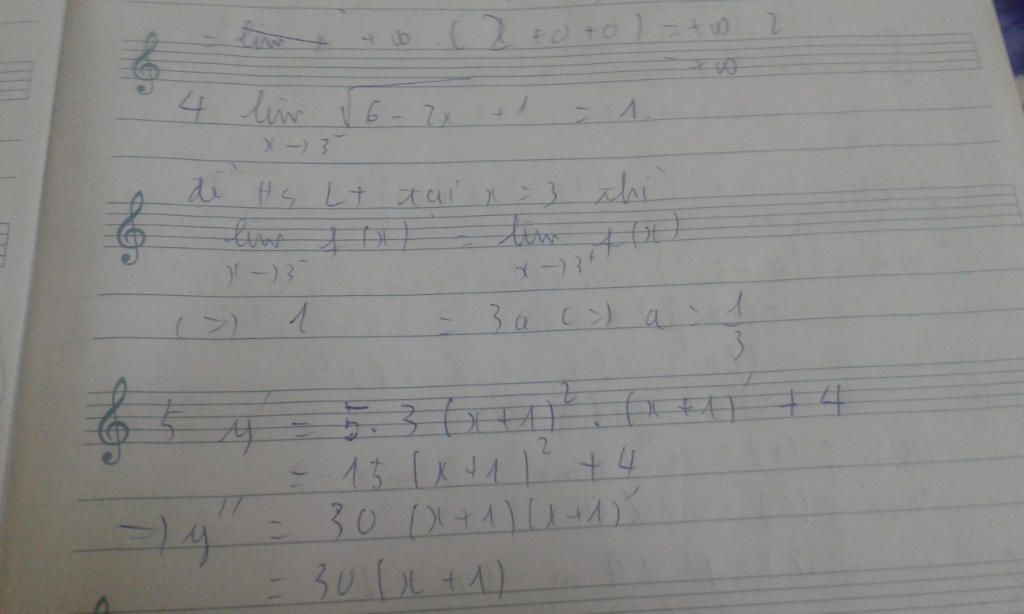 = +∞ . (2 + 0 + 0) = +∞ . 2
= +∞
4 lim √6 - 2x + 1 = 1.
x → 3⁻
để Hs Lt xại x = 3 khi
lim f(x) = lim f(x)
x → 3⁻ x → 3⁺
(=) 1 = 3a (=) a = 1/3
5 y' = 5. 3 (x+1)² . (x+1)' + 4
= 15 (x+1)² + 4
=) y'' = 30 (x+1)(x+1)'
= 30 (x+1)